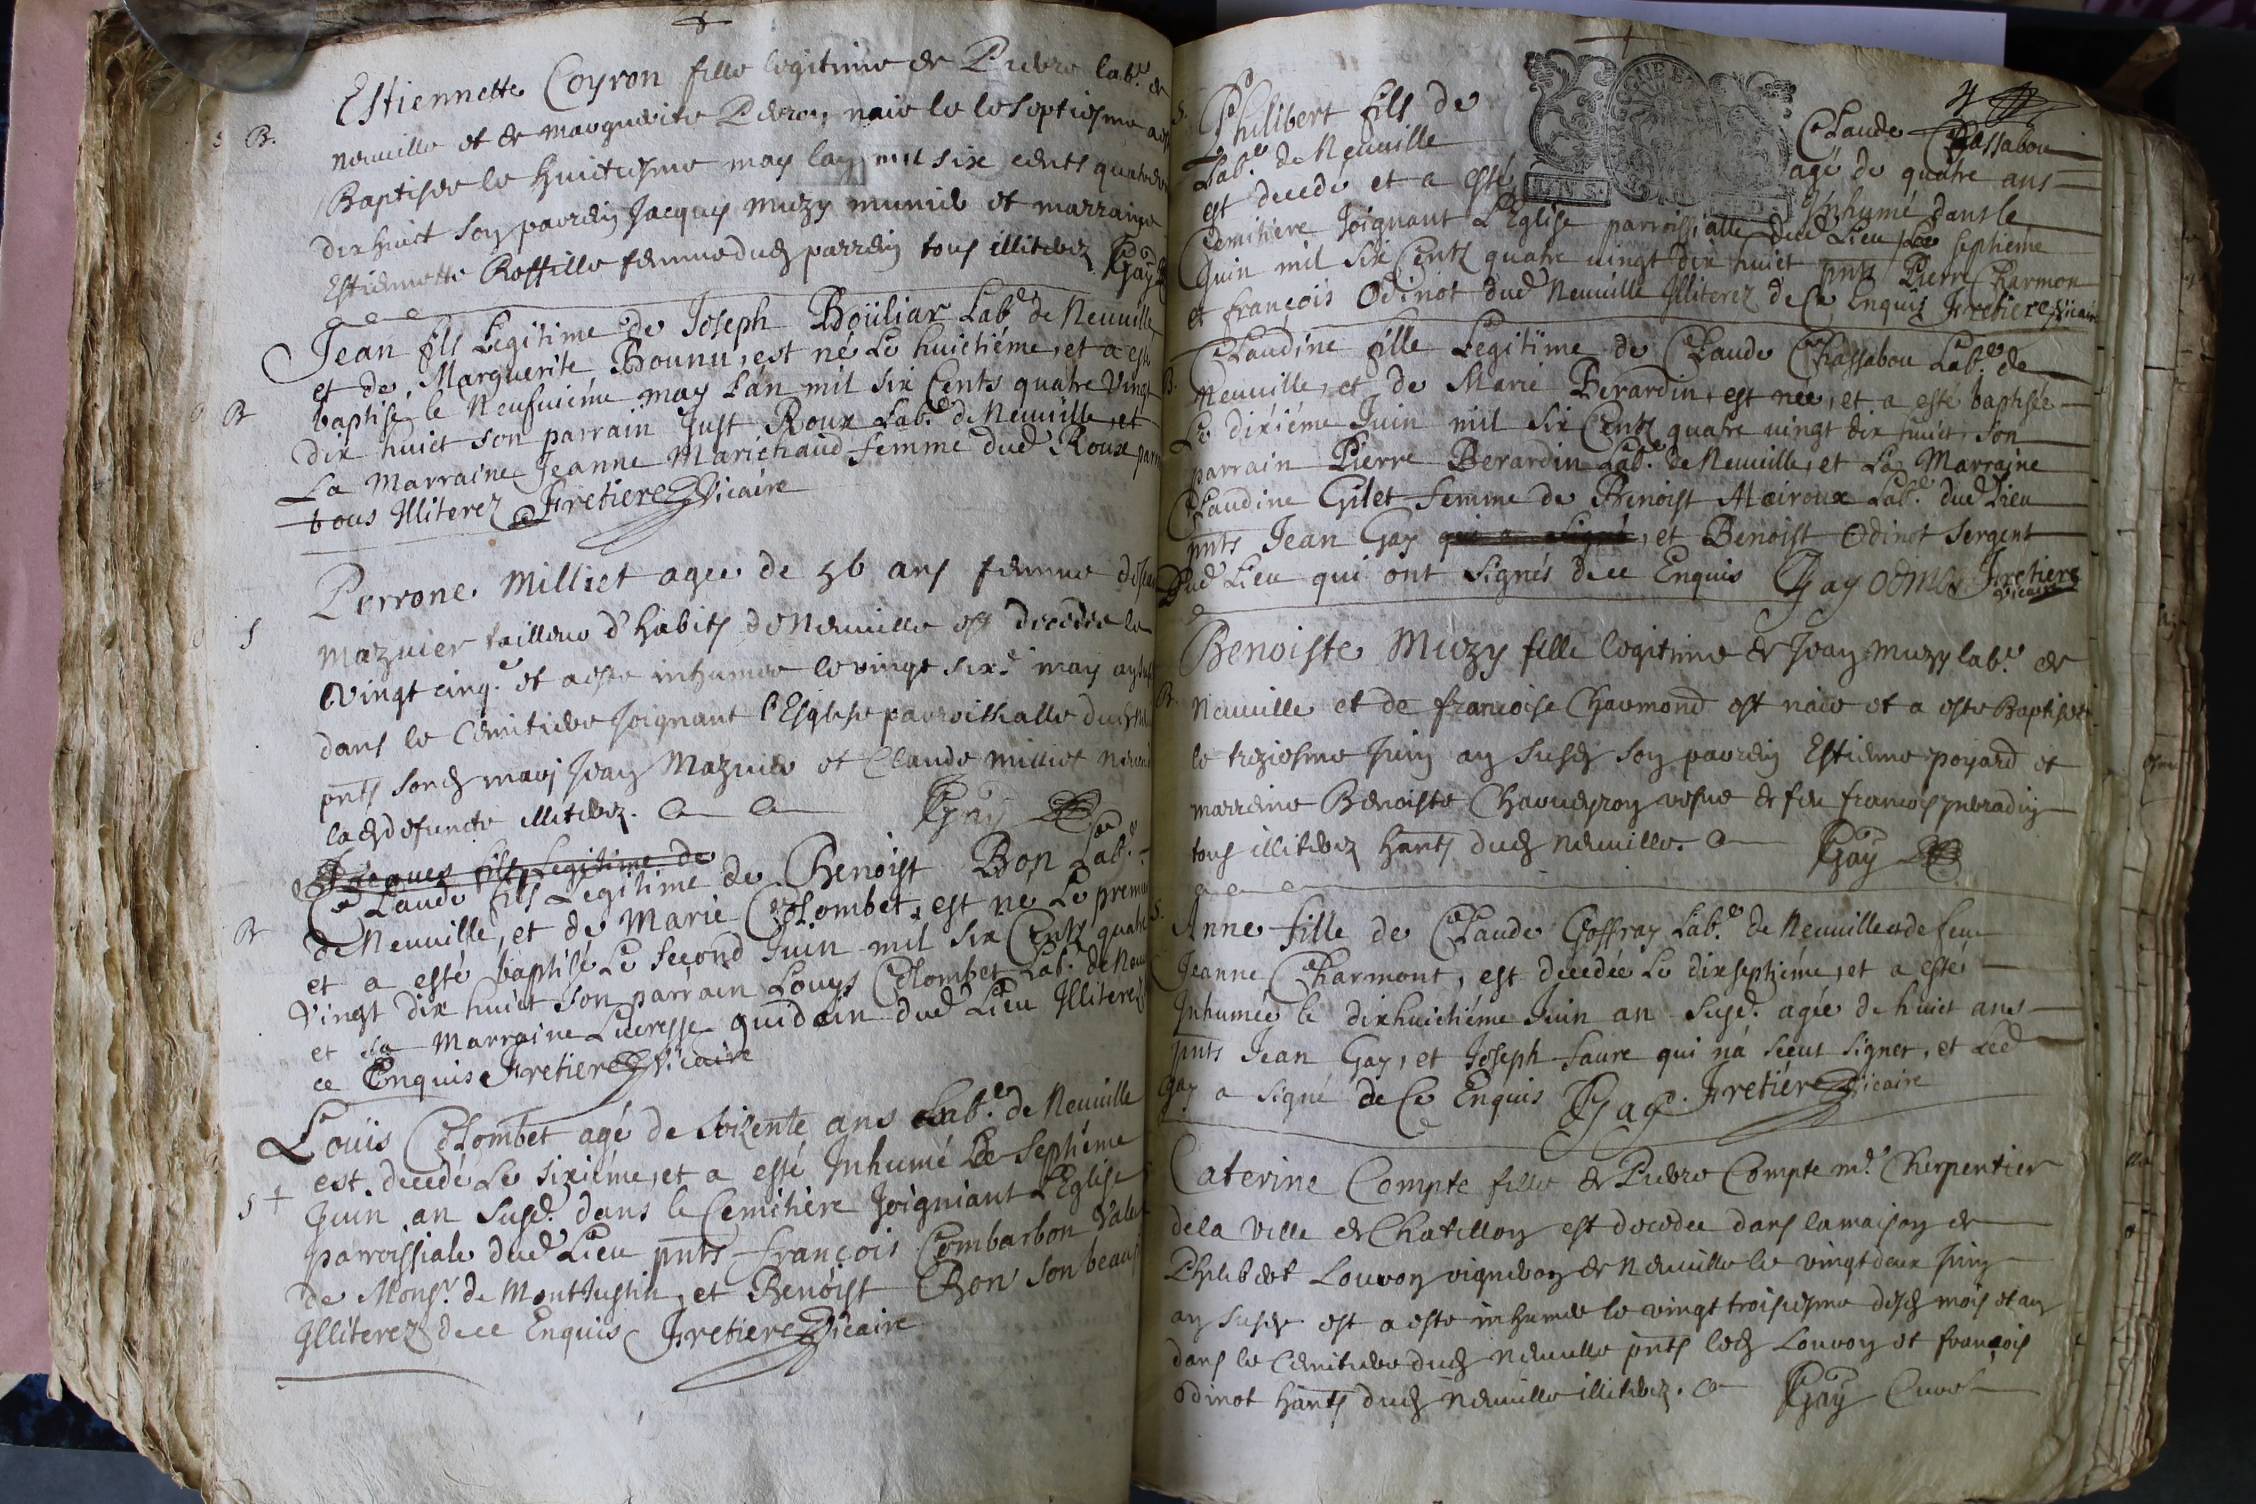 Estiennette Coyron fille legitime de Pierre lab.r de
B. neuville et de marguerite naie le septiesme
Baptisee le huictiesme may lan mil six cents quatre
dix huict son parrin Jacques muzy munier et marraine
Estiennette Roffille femme dud parrein tous illiterez Gay
Jean fils Legitime de Joseph Boüliar Lab.r de Neuville
et de Marguerite Bounu, est né Le huictiéme, et a esté
B baptisé le Neufuiéme may Lan mil six Cents quatre Vingt
dix huict son parrain Just Roux Lab.r de Neuuille, et
La Marraine Jeanne Marichaud femme dud Roux
tous Illiterez Fretiere Vicaire
Perrone Milliet agee de 56 ans femme
S maznier tailleur d'habits de Neuville est decedée le
vingt cinq.e et a este inhumee le vingt six.e may an
dans le Cemitiere Joignant l'Eglise parroissialle dud
pnts sond mary Jean Maznier et Claude Milliet
lad defuncte illiterez. Gay
Jacques fils Legitime de
Claude fils Legitime de Benoist Bon Lab.r
B de Neuuille, et de Marie Colombet, est né Le premier
et a esté baptisé Le second Juin mil six Cents quatre
Vingt dix huict son parrain Louys Colombet Lab.r de
et sa Marraine Lucresse quidain dud Lieu Illiterez
ce Enquis Fretiere Vicaire
Louis Colombet agé de soixente ans Lab.r de Neuuille
est decedé Le sixiéme, et a esté Inhumé Le Septiéme
S + Juin an susd. dans le Cemitiere Joigniant L'Eglise
parroissiale dud Lieu pnts françois Combarbon Valet
de Mons.r de MontJustin, et Benoist Bon son beau
Illiterez de ce Enquis Fretiere Vicaire
S. Philibert fils de Claude Chassabou
Lab.r de Neuuille agé de quatre ans
est decede et a esté Inhumé dans le
Cemitiere Joignant L'Eglise parroissialle dud Lieu Le septiéme
Juin mil six Cents quatre uingt dix huict pnts Pierre Charmon
et françois Odinot dud Neuuille Illiterez de Ce Enquis Fretiere Vicaire
Claudine fille Legitime de Claude Chassabou Lab.r de
B. Neuuille, et de Marie Berardin, est née, et a esté baptisée
Le dixiéme Juin mil six Cents quatre uingt dix huict, son
parrain Pierre Berardin Lab.r de Neuuille, et La Marraine
Claudine Gilet femme de Benoist Moiroux Lab.r dud Lieu
pnts Jean Gay qui a signé, et Benoist Odinot sergent
Dud Lieu qui ont signés de ce Enquis Gay Odinot Fretiere
Vicaire
Benoiste Muzy fille legitime de Jean Muzy lab.r de
B Neuuille et de francoise Charmond est naie et a este Baptisee
le treziesme Juin an susd son parrein Estienne poyard et
marreine Benoiste vefue de feu francois
tous illiterez hants dud neuuille. Gay
S. Anne fille de Claude Goffray Lab.r de Neuuille & de feue
Jeanne Charmont, est décedée Le dixseptiéme, et a esté
Inhumée le dixhuictiéme Juin an susd. agée de huict ans
pnts Jean Gay, et Joseph faure qui n'a sceut signer, et Led
Gay a signé de Ce Enquis Gay Fretiere Vicaire
Caterine Compte fille de Pierre Compte m.e Cherpentier
de la Ville de Chatillon est decedee dans la maison de
Philibert Louvon vigneron de Neuuille le vingt deux Juin
an susd est a este inhumee le vingt troisiesme desd mois et an
dans le Cemitiere dud neuuille pnts led Louvon et françois
odinot hants dud neuuille illiterez. Gay Curé